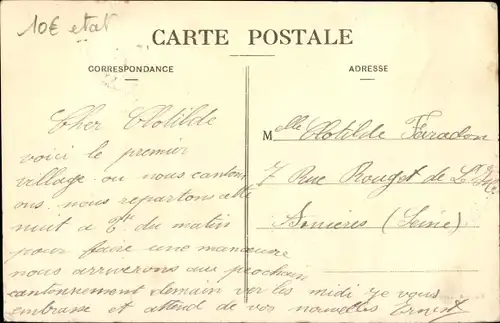 10€ etat
CARTE POSTALE
CORRESPONDANCE
ADRESSE
Cher Clotilde
voici le premier
village ou nous canton
ons nous repartons cette
nuit a du matin
pour faire une manœuvre
nous arriverons au prochain
cantonnement demain ver les midi je vous
embrasse et attend de vos nouvelles Ernest
Melle Clotilde
7 Rue Rouget de L'Isle
Asnieres (Seine)